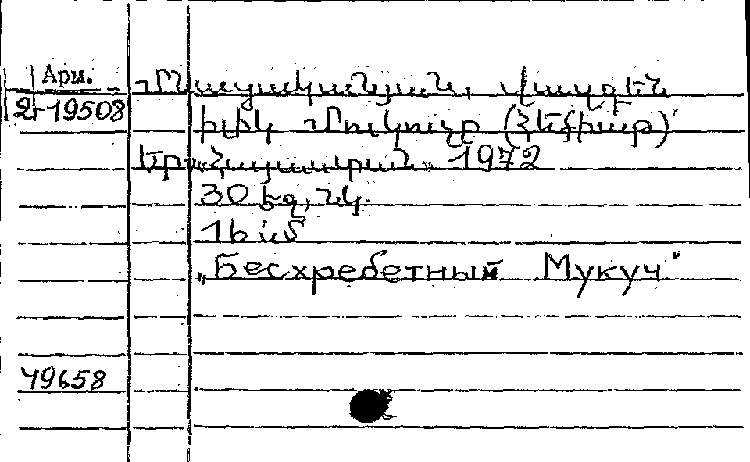 Арм.
2-19508
Մնացականյան, Վազգեն
Մուկուչը (հեքիաթ)
Եր. «Հայաստան» 1972
30 էջ, նկ.
16 սմ
„Бесхребетный Мукуч"
49658